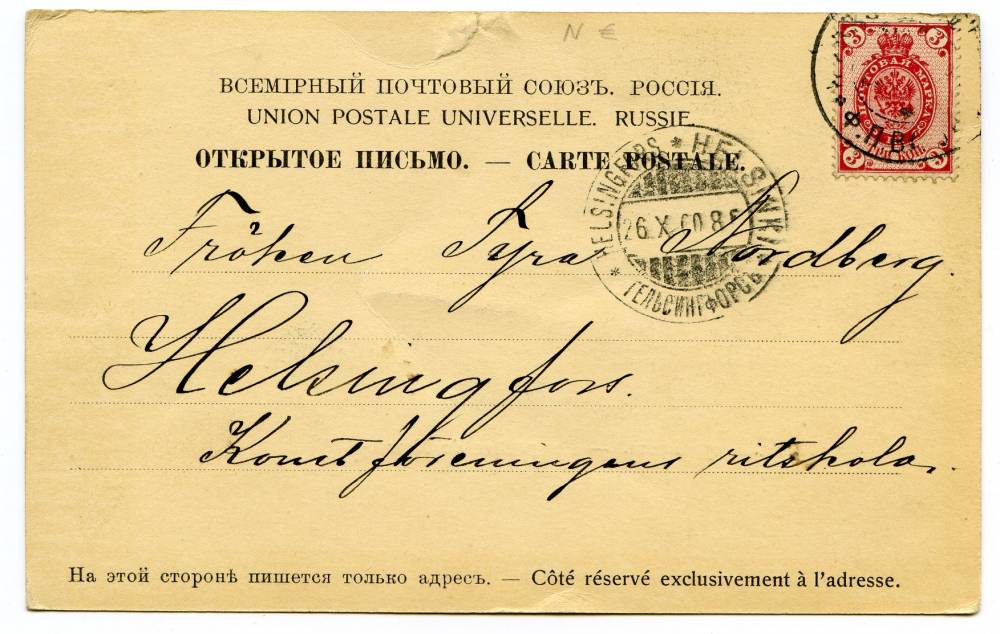 N €
ВСЕМІРНЫЙ ПОЧТОВЫЙ СОЮЗЪ. РОССІЯ.
UNION POSTALE UNIVERSELLE. RUSSIE.
ОТКРЫТОЕ ПИСЬМО. — CARTE POSTALE.
3 3
ПОЧТОВАЯ МАРКА
3 3
Ф.П.В.
HELSINGFORS * HELSINKI
26.X.00 8
* ГЕЛЬСИНГФОРСЪ
Fröken Tyra Nordberg.
Helsingfors.
Konstföreningens ritskola.
На этой сторонѣ пишется только адресъ. — Côté réservé exclusivement à l'adresse.